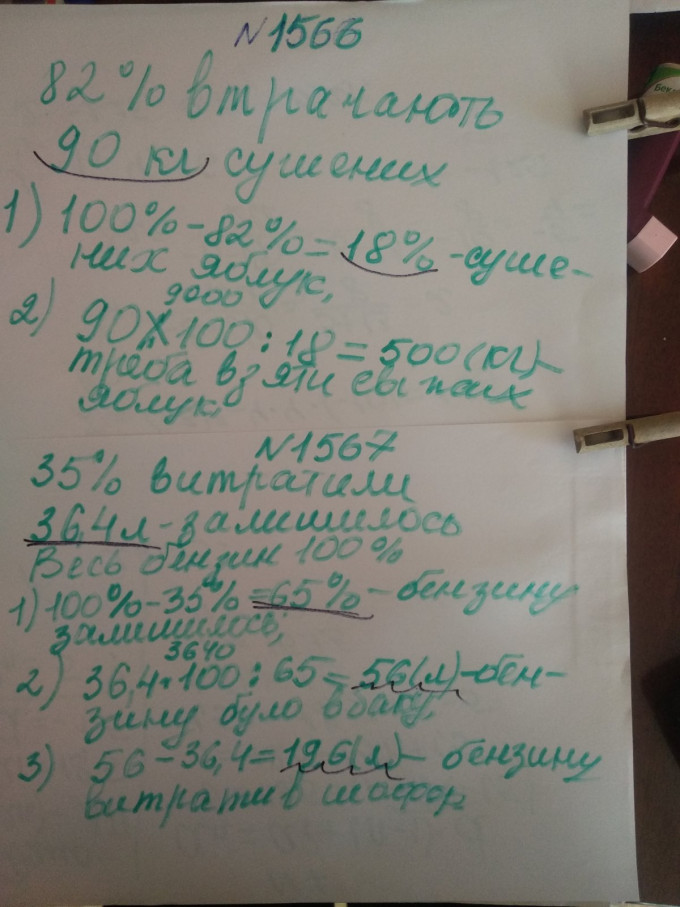 №1566
82% втрачають
90 кг сушених
1) 100% - 82% = 18% - суше-
них яблук,
9000
2) 90 X 100 : 18 = 500 (кг) -
треба взяти свіжих
яблук.
№1567
35% витратили
36,4 л - залишилось
Весь бензин 100%
1) 100% - 35% = 65% - бензину
залишилось,
3640
2) 36,4 · 100 : 65 = 56 (л) - бен-
зину було в баку,
3) 56 - 36,4 = 19,6 (л) - бензину
витратив шофер